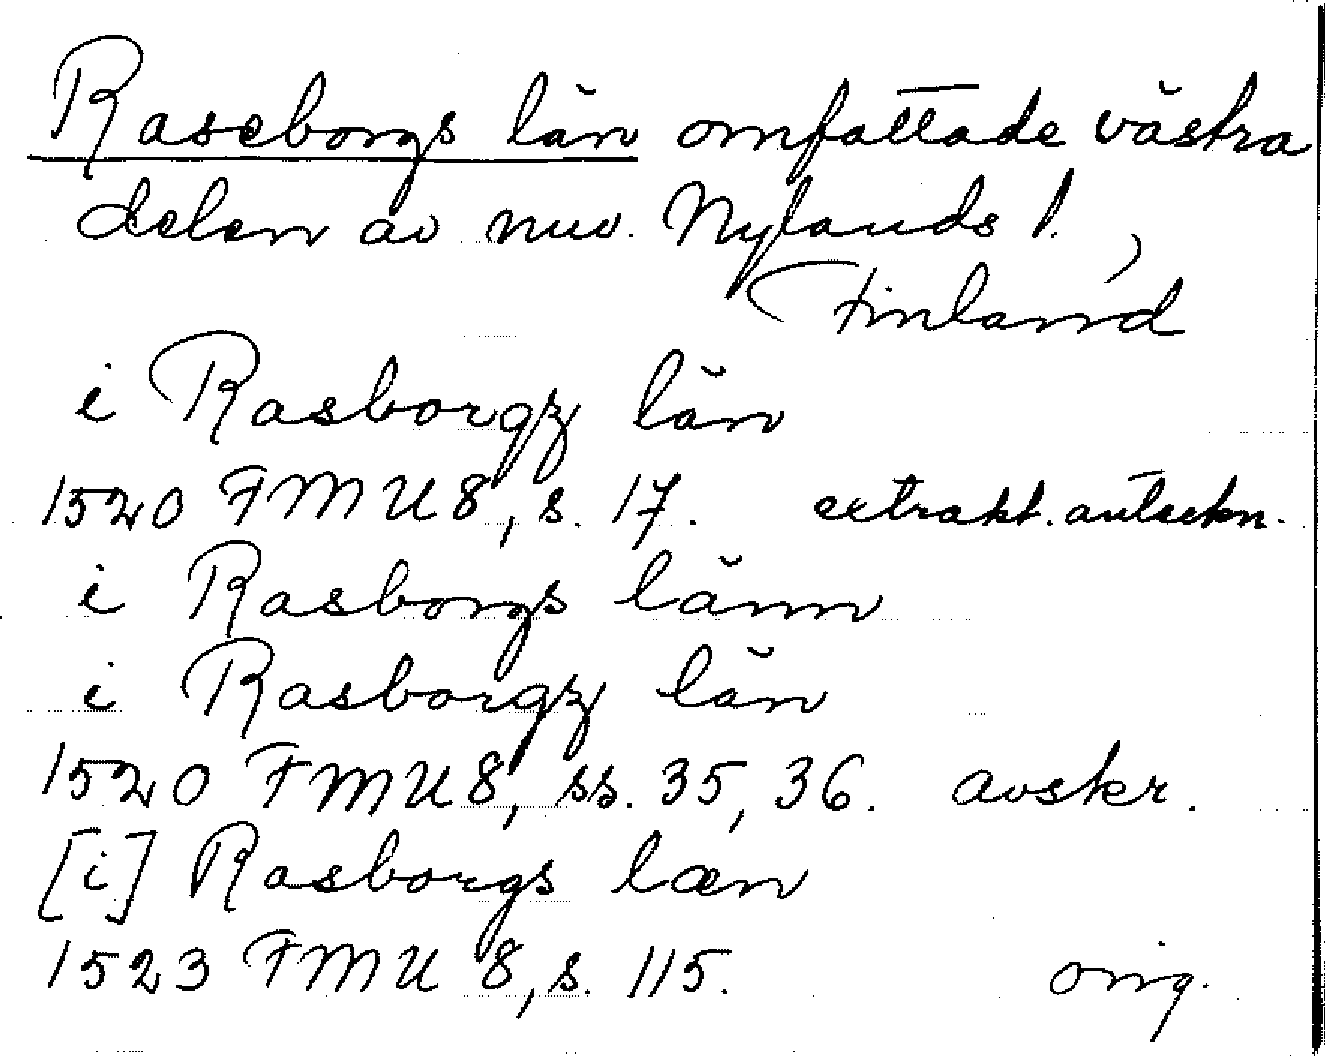 Raseborgs län omfattade västra
delen av nuv. Nylands l.,
Finland
i Rasborgz län
1520 FMU 8, s. 17. extrakt. anteckn.
i Rasborgs länn
i Rasborgz län
1520 FMU 8, ss. 35, 36. avskr.
[i] Rasborgs læn
1523 FMU 8, s. 115. orig.